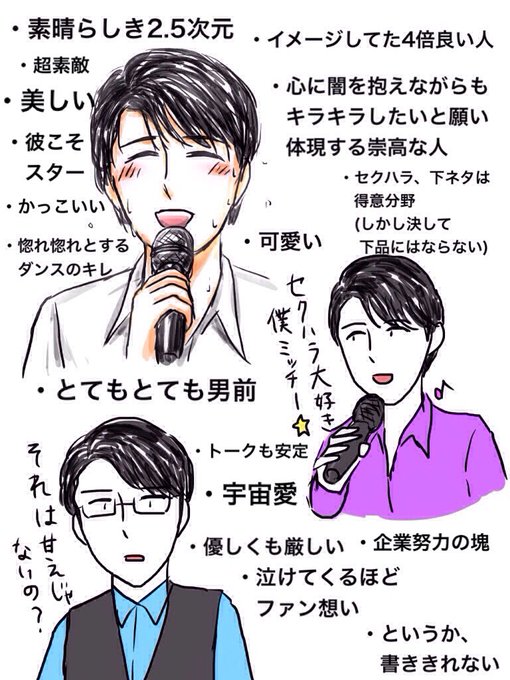 ・素晴らしき2.5次元
・イメージしてた4倍良い人
・超素敵
・美しい
・心に闇を抱えながらも
キラキラしたいと願い
体現する崇高な人
・彼こそ
スター
・セクハラ、下ネタは
得意分野
(しかし決して
下品にはならない)
・かっこいい
・惚れ惚れとする
ダンスのキレ
・可愛い
セクハラ大好き
僕ミッチー
・とてもとても男前
・トークも安定
・宇宙愛
それは甘えじゃ
ないの?
・優しくも厳しい
・企業努力の塊
・泣けてくるほど
ファン想い
・というか、
書ききれない